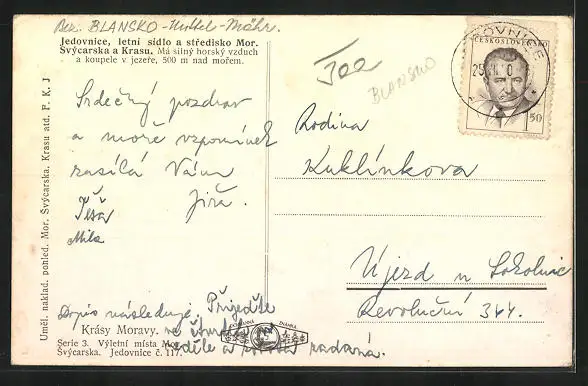 Bez. BLANSKO-Mittel-Mähr.
Jedovnice, letní sídlo a středisko Mor.
Švýcarska a Krasu. Má silný horský vzduch
a koupele v jezeře, 500 m nad mořem.
Uměl. naklad. pohled. Mor. Švýcarska. Krasu atd. P. K. J
300
BLANSKO
ČESKOSLOVENSKO
50
Srdečný pozdrav
a moře vzpomínek
zasílá Vám
Jiřa.
Rodina
Kuklínkova
Újezd u Sokolnic
Revoluční 344.
Dopis následuje. Přijeďte
Krásy Moravy.
Serie 3. Výletní místa Mor.
Švýcarska. Jedovnice č. 117.
neděle a